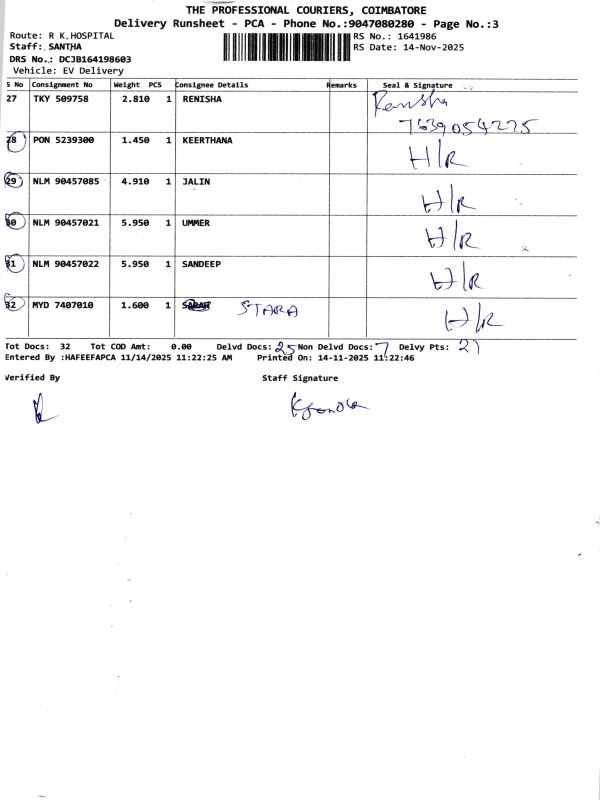 THE PROFESSIONAL COURIERS, COIMBATORE
Delivery Runsheet - PCA - Phone No.:9047080280 - Page No.:3
Route: R K.HOSPITAL RS No.: 1641986
Staff: SANTHA RS Date: 14-Nov-2025
DRS No.: DCJB164198603
Vehicle: EV Delivery
S No Consignment No Weight PCS Consignee Details Remarks Seal & Signature
27 TKY 509758 2.810 1 RENISHA Renisha
7639054275
28 PON 5239300 1.450 1 KEERTHANA H/R
29 NLM 90457085 4.910 1 JALIN H/R
30 NLM 90457021 5.950 1 UMMER H/R
31 NLM 90457022 5.950 1 SANDEEP H/R
32 MYD 7407010 1.600 1 SITARA H/R
Tot Docs: 32 Tot COD Amt: 0.00 Delvd Docs: 25 Non Delvd Docs: 7 Delvy Pts: 21
Entered By :HAFEEFAPCA 11/14/2025 11:22:25 AM Printed On: 14-11-2025 11:22:46
Verified By Staff Signature